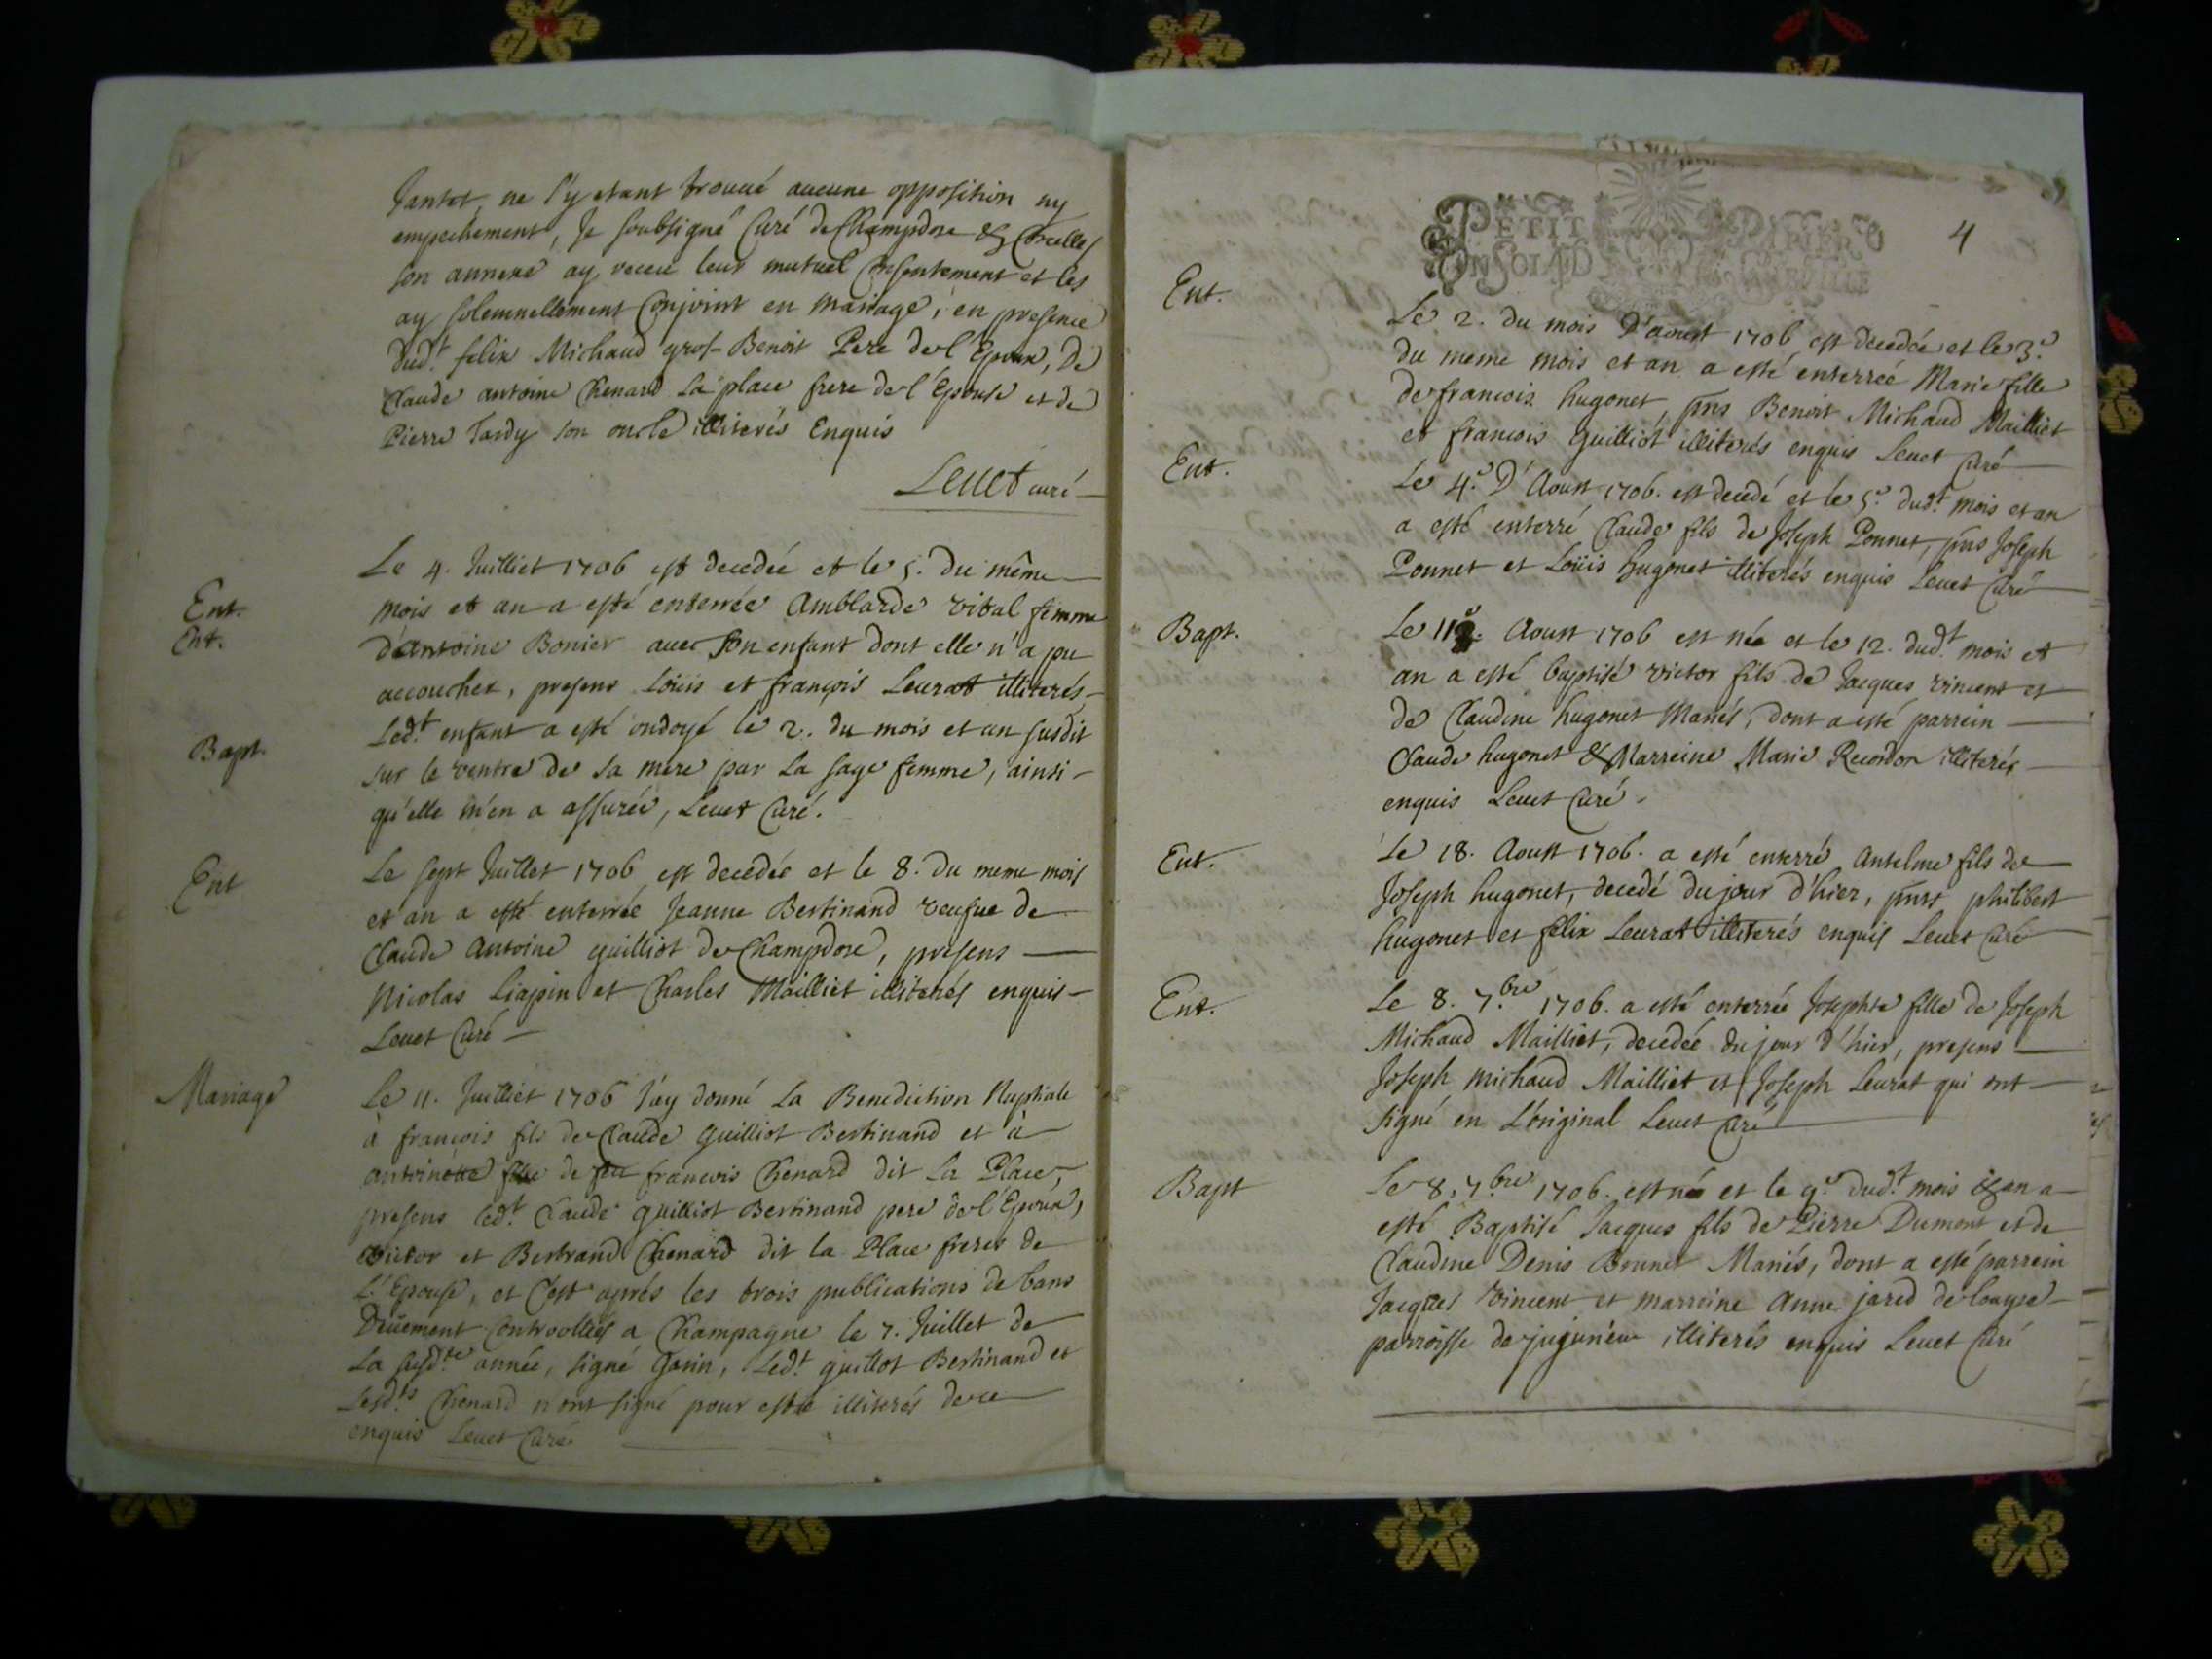 Jantet, ne s'y etant trouué aucune opposition ny
empechement, Je soubsigné Curé de Champdore & Corcelles
son annexe ay receu leur mutuel Consentement et les
ay solemnellement Conjoint en mariage, en presence
dud.t felix Michaud gros-Benoit Pere de l'Epoux, De
Claude antoine Chenard La place frere de l'Epouse et de
Pierre Tardy son oncle illiterés Enquis
Leuet curé
Ent.
Ent.
Le 4. Juilliet 1706 est decedée et le 5. du même
mois et an a esté enterrée Amblarde vital femme
d'antoine Bonier auec son enfant dont elle n'a pu
accoucher, presens Loüis et françois Leurat illiterés
Bapt.
Led.t enfant a esté ondoyé le 2. du mois et an susdit
sur le ventre de sa mere par La sage femme, ainsi
qu'elle m'en a assurée, Leuet Curé.
Ent
Le sept Juillet 1706 est decedée et le 8. du meme mois
et an a esté enterrée Jeanne Bertinand veufue de
Claude Antoine guilliot de Champdore, presens
Nicolas Liapin et Charles Mailliet illiterés enquis
Leuet Curé
Mariage
Le 11. Juilliet 1706 J'ay donné La Benediction Nuptiale
à françois fils de Claude Guilliot Bertinand et à
antoinette fille de feu francois Chenard dit La Place,
presens led.t Claude guilliot Bertinand pere de l'Epoux,
victor et Bertrand Chenard dit la Place freres de
L'Epouse, et C'est aprés les trois publications de bans
Düement Controollées a Champagne le 7. Juillet de
La susd.te année, signé Gorin, Led.t guillot Bertinand et
Lesd.ts Chenard n'ont signé pour estre illiterés de ce
enquis Leuet Curé
PETIT PAPIER
4
Ent.
Le 2. du mois D'aoust 1706 est decedée et le 3.e
du meme mois et an a esté enterreé Marie fille
de francois hugonet, pnts Benoit Michaud Mailliet
et francois guilliot illiterés enquis Leuet Curé
Ent.
Le 4.e D'Aoust 1706. est decedé et le 5.e dud.t mois et an
a esté enterré Claude fils de Joseph Ponnet, pnts Joseph
Ponnet et Loüis hugonet illiterés enquis Leuet Curé
Bapt.
Le 11e. Aoust 1706 est née et le 12. dud.t mois et
an a esté baptisé victor fils de Jacques vincent et
de Claudine hugonet Mariés, dont a esté parrein
Claude hugonet & Marreine Marie Recordon illiterés
enquis Leuet Curé.
Ent.
Le 18. Aoust 1706. a esté enterré Antelme fils de
Joseph hugonet, decedé du jour d'hier, pnts philibert
hugonet et felix Leurat illiterés enquis Leuet Curé
Ent.
Le 8. 7.bre 1706. a esté enterrée Josephte fille de Joseph
Michaud Mailliet, decedée du jour d'hier, presens
Joseph michaud Mailliet et Joseph Leurat qui ont
signé en L'original Leuet Curé
Bapt
Le 8. 7.bre 1706. est né et le 9.e dud.t mois & an a
esté Baptisé Jacques fils de Pierre Dumont et de
Claudine Denis Brunet Mariés, dont a esté parrein
Jacques Vincent et marreine Anne jared de Louyse
parroisse de jujurieux illiterés enquis Leuet Curé